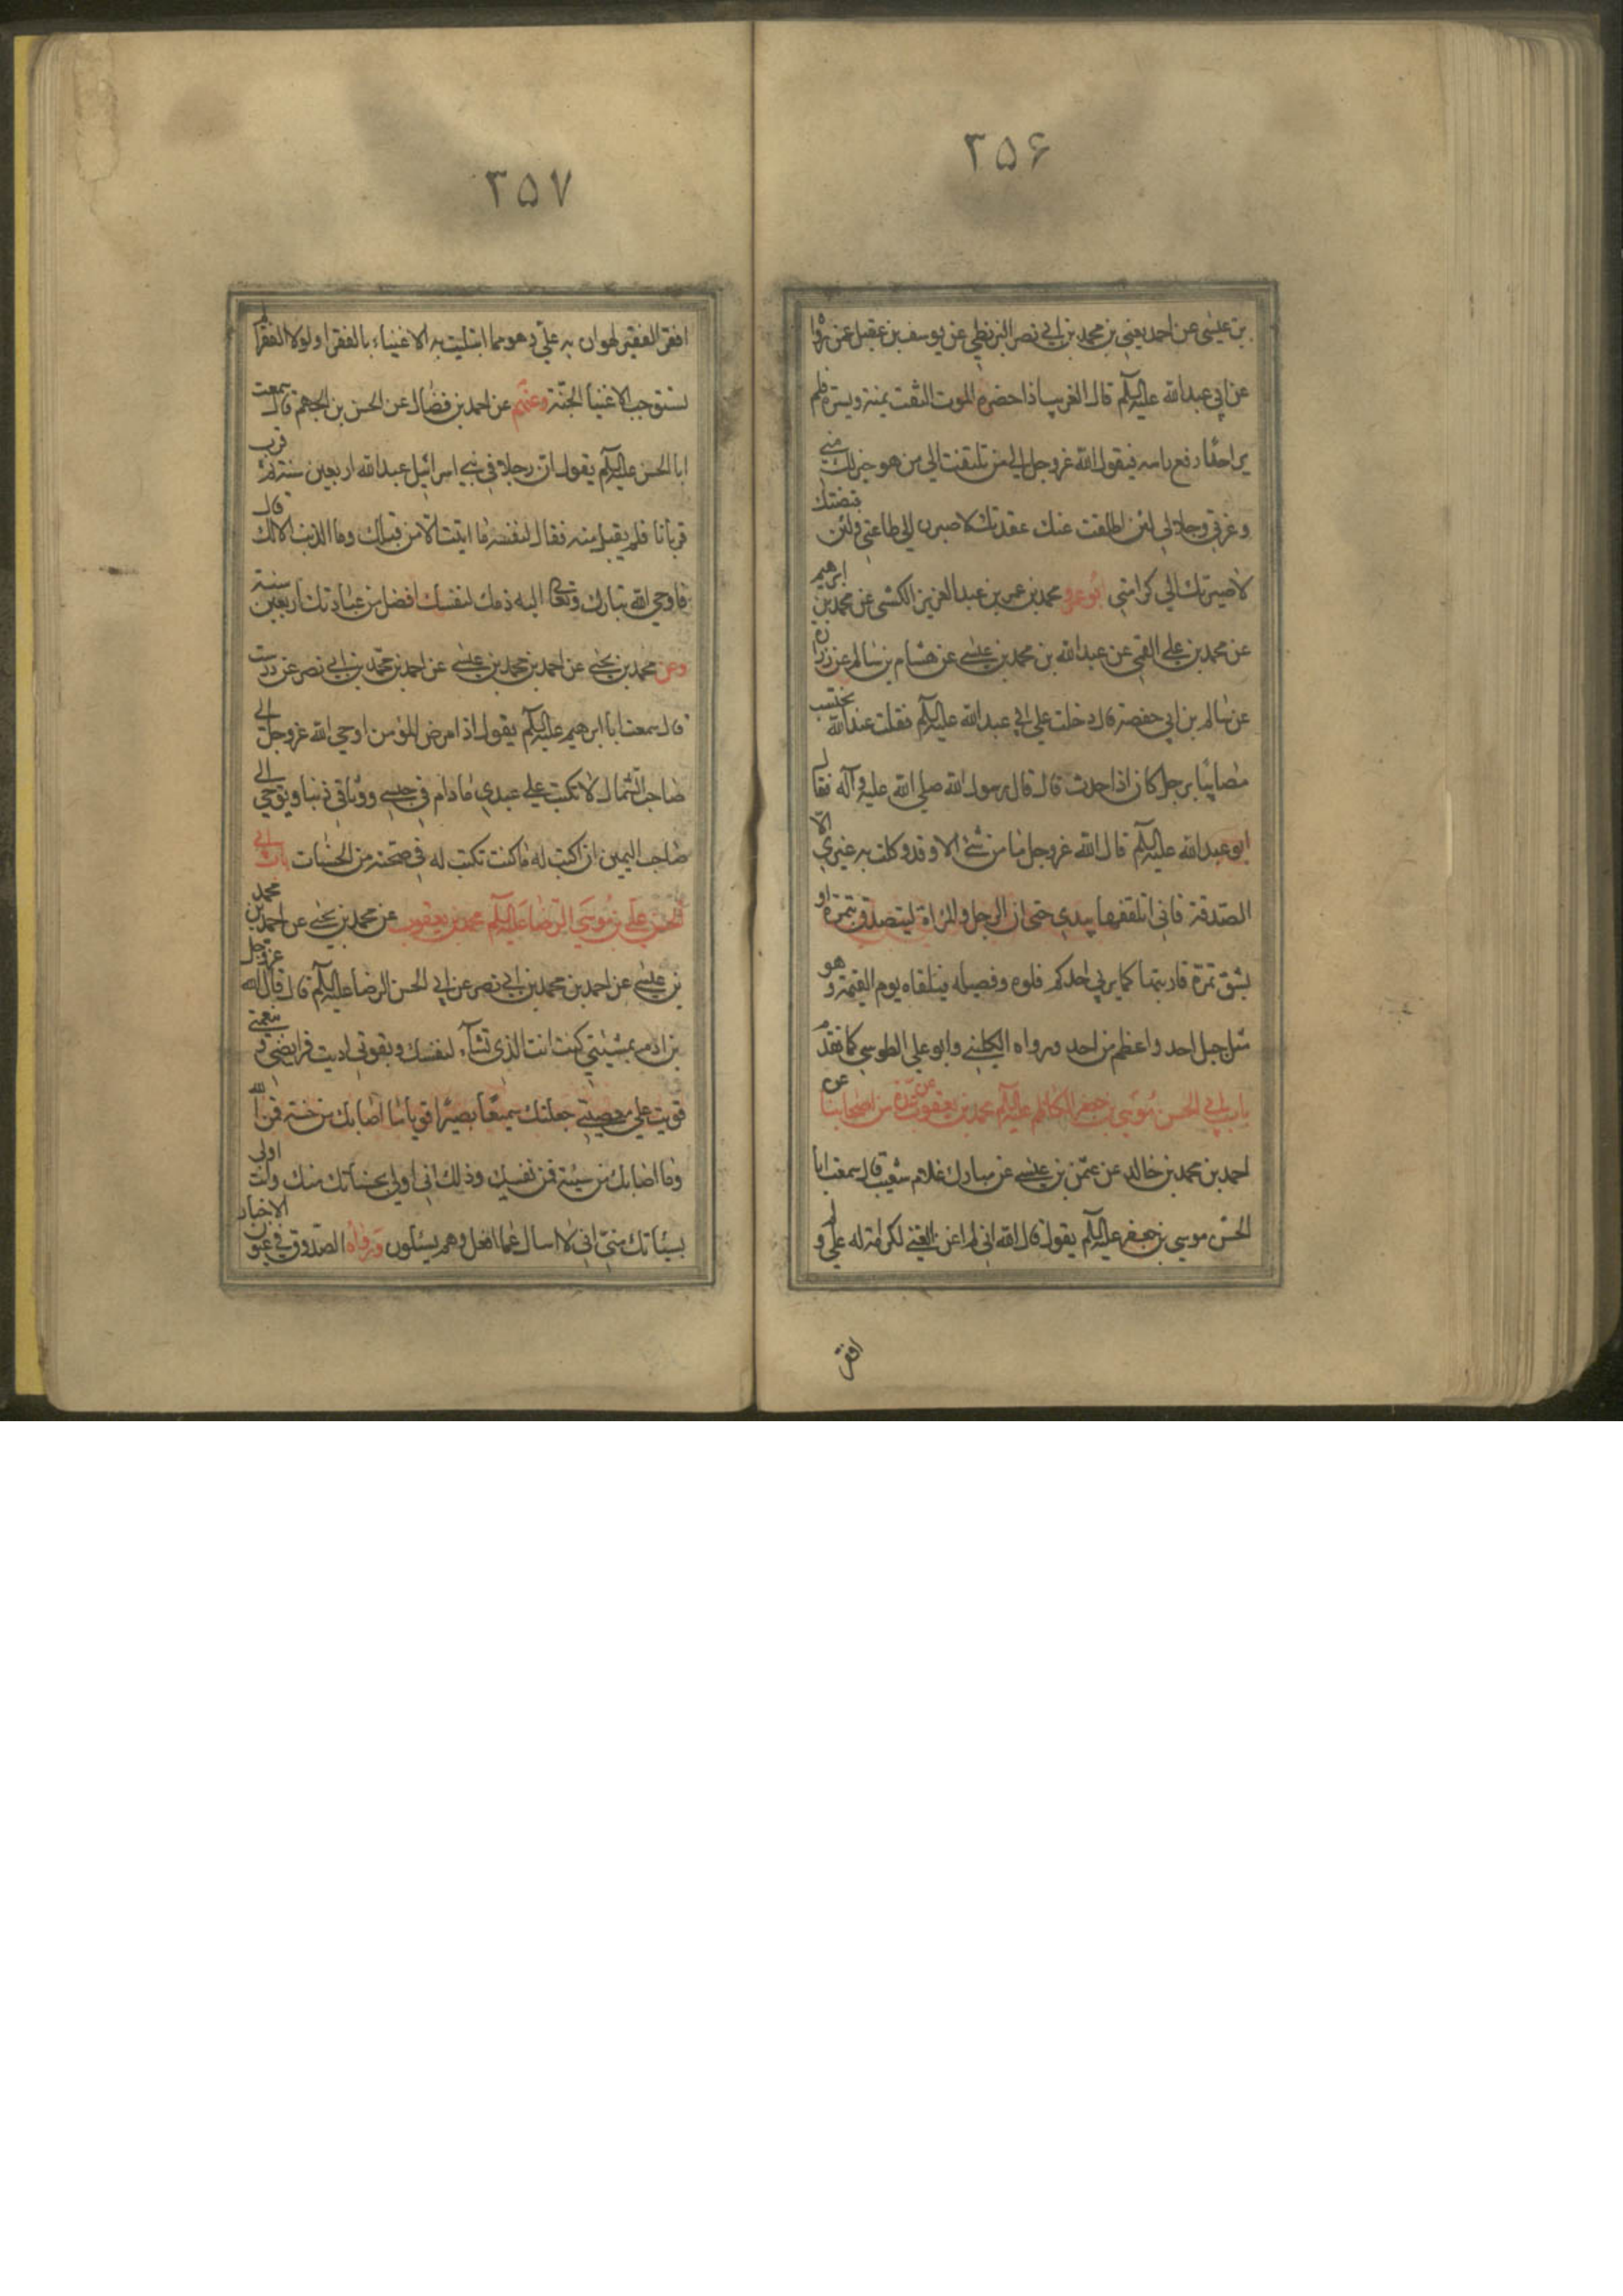 ۳۵۶
بن عيسى عن احمد يعني بن محمد بن ابي نصر البزنطي عن يوسف بن عقيل عن
عن ابي عبدالله عليه السلم قال الغريب اذا حضره الموت التفت يمنة ويسرة فلم
ير احدا رفع راسه فيقول الله عزوجل الى من تلتفت الى من هو خير لك مني
وعزتي وجلالي لئن اطلقت عنك عقدتك لاصيرن الى طاعتي ولئن قبضتك
لاصيرنك الى كرامتي ابو عمرو محمد بن عمر بن عبد العزيز الكشي عن محمد بن ابرهيم
عن محمد بن علي القمي عن عبدالله بن محمد بن عيسى عن هشام بن سالم عن زرارة
عن سالم بن ابي حفصة قال دخلت على ابي عبدالله عليه السلم فقلت عند الله نحتسب
مصابنا برجل كان اذا حدث قال قال رسول الله صلى الله عليه وآله فقال
ابو عبدالله عليه السلم قال الله عزوجل ما من شئ الا وقد وكلت به غيري الا
الصدقة فاني اتلقفها بيدي حتى ان الرجل والمراة ليتصدق بتمرة او
بشق تمرة فاربيها كما يربي احدكم فلوه وفصيله فيلقاه يوم القيمة وهو
مثل جبل احد واعظم من احد ورواه الكليني وابو علي الطوسي كما تقدم
باب ابي الحسن موسى بن جعفر الكاظم عليه السلم محمد بن يعقوب عن عدة من اصحابنا عن
احمد بن محمد بن خالد عن عثمن بن عيسى عن مبارك غلام شعيب قال سمعت ابا
الحسن موسى بن جعفر عليه السلم يقول قال الله اني لم اغن الغني لكرامة له علي ولم
افقر
۳۵۷
افقر الفقير لهوان به علي وهو مما ابتليت به الاغنياء بالفقرا ولولا الفقرا لم
تستوجب الاغنيا الجنة وعنهم عن احمد بن فضال عن الحسن بن الجهم قال سمعت
ابا الحسن عليه السلم يقول ان رجلا في بني اسرائيل عبد الله اربعين سنة ثم قرب
قربانا فلم يقبل منه فقال لنفسه ما اتيت الا من قبلك وما الذنب الا لك قال
فاوحى الله تبارك وتعالى اليه ذمك لنفسك افضل من عبادتك اربعين سنة
وعن محمد بن يحيى عن احمد بن محمد بن عيسى عن احمد بن محمد بن ابي نصر عن درست
قال سمعت ابا ابرهيم عليه السلم يقول اذا مرض المؤمن اوحى الله عزوجل الى
صاحب الشمال لا تكتب على عبدي ما دام في حبسي ووثاقي ذنبا ويوحي الى
صاحب اليمين ان اكتب له ما كنت تكتب له في صحته من الحسنات باب ابي
الحسن علي بن موسى الرضا عليه السلم محمد بن يعقوب عن محمد بن يحيى عن احمد بن محمد
بن عيسى عن احمد بن محمد بن ابي نصر عن ابي الحسن الرضا عليه السلم قال قال الله عزوجل
بن ادم بمشيتي كنت انت الذي تشآء لنفسك وبقوتي اديت فرايضي وبنعمتي
قويت على معصيتي جعلتك سميعا بصيرا قويا ما اصابك من حسنة فمن الله
وما اصابك من سيئة فمن نفسك وذلك اني اولى بحسناتك منك وانت اولى
بسيئاتك مني اني لا اسال عما افعل وهم يسئلون ورواه الصدوق في عيون الاخبار